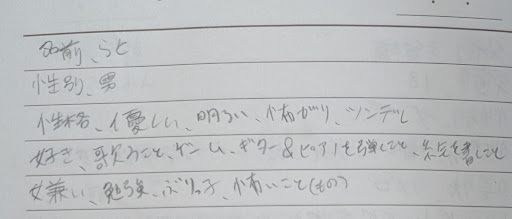 名前、らと
性別、男
性格、優しい、明るい、怖がり、ツンデレ
好き、歌うこと、ゲーム、ギター&ピアノを弾くこと、絵を書くこと
嫌い、勉強、ぶりっ子、怖いこと(もの)